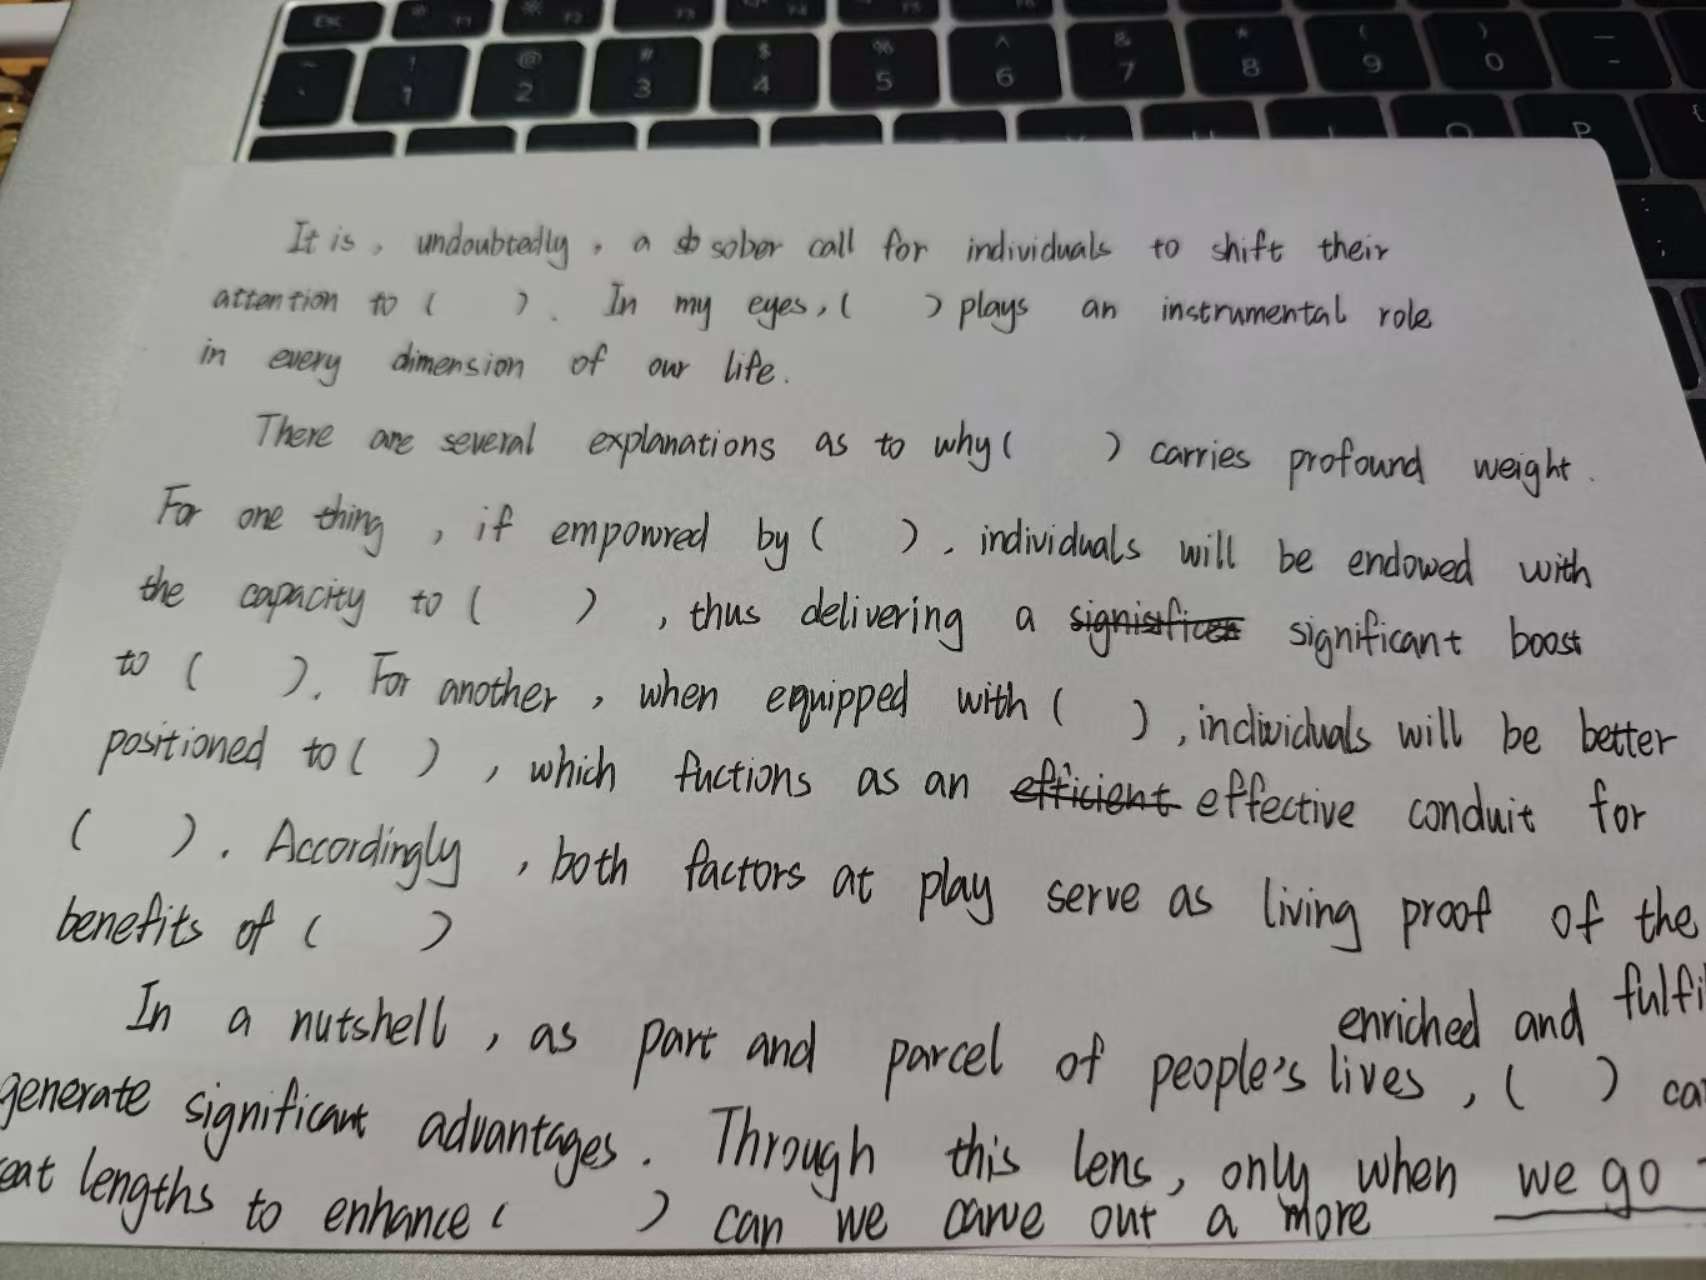 esc F1 F2 F3 F4 F5
~ ` ! 1 @ 2 # 3 $ 4 % 5 ^ 6 & 7 * 8 ( 9 ) 0 — -
O P {
: ;
It is, undoubtedly, a sober call for individuals to shift their
attention to ( ). In my eyes, ( ) plays an instrumental role
in every dimension of our life.
There are several explanations as to why ( ) carries profound weight.
For one thing, if empowred by ( ), individuals will be endowed with
the capacity to ( ), thus delivering a significant boost
to ( ). For another, when equipped with ( ), individuals will be better
positioned to ( ), which fuctions as an efficient effective conduit for
( ). Accordingly, both factors at play serve as living proof of the
benefits of ( )
enriched and fulfi
In a nutshell, as part and parcel of people's lives, ( ) ca
generate significant advantages. Through this lens, only when we go
eat lengths to enhance ( ) can we carve out a more